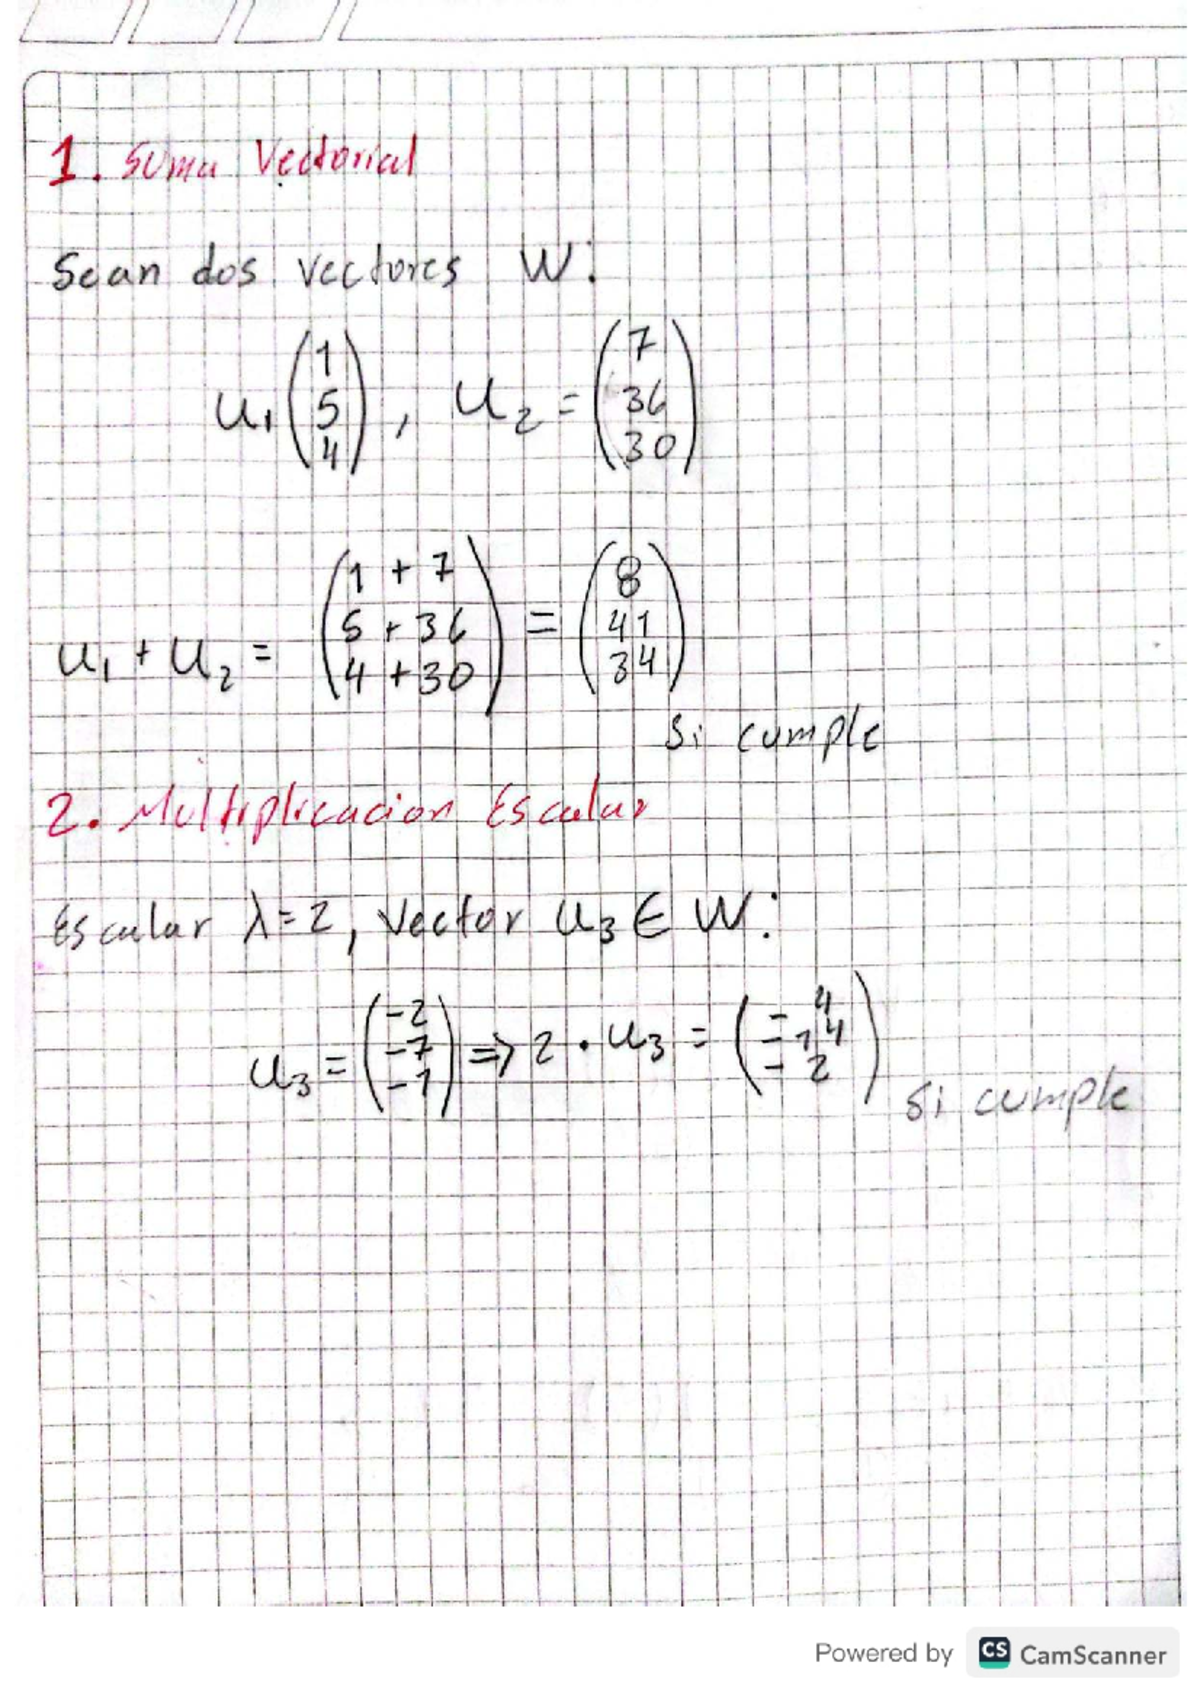 1. Suma Vectorial
Sean dos vectores W:
u₁ (1 5 4), u₂ = (7 36 30)
u₁ + u₂ = (1 + 7 5 + 36 4 + 30) = (8 41 34)
Si cumple
2. Multiplicacion Escalar
Escalar λ=2, Vector u₃ ∈ W:
u₃ = (-2 -7 -1) => 2 · u₃ = (-4 -14 -2)
Si cumple
Powered by CS CamScanner